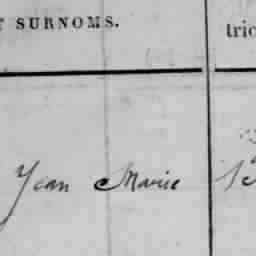 T SURNOMS.
tric
Jean Marie